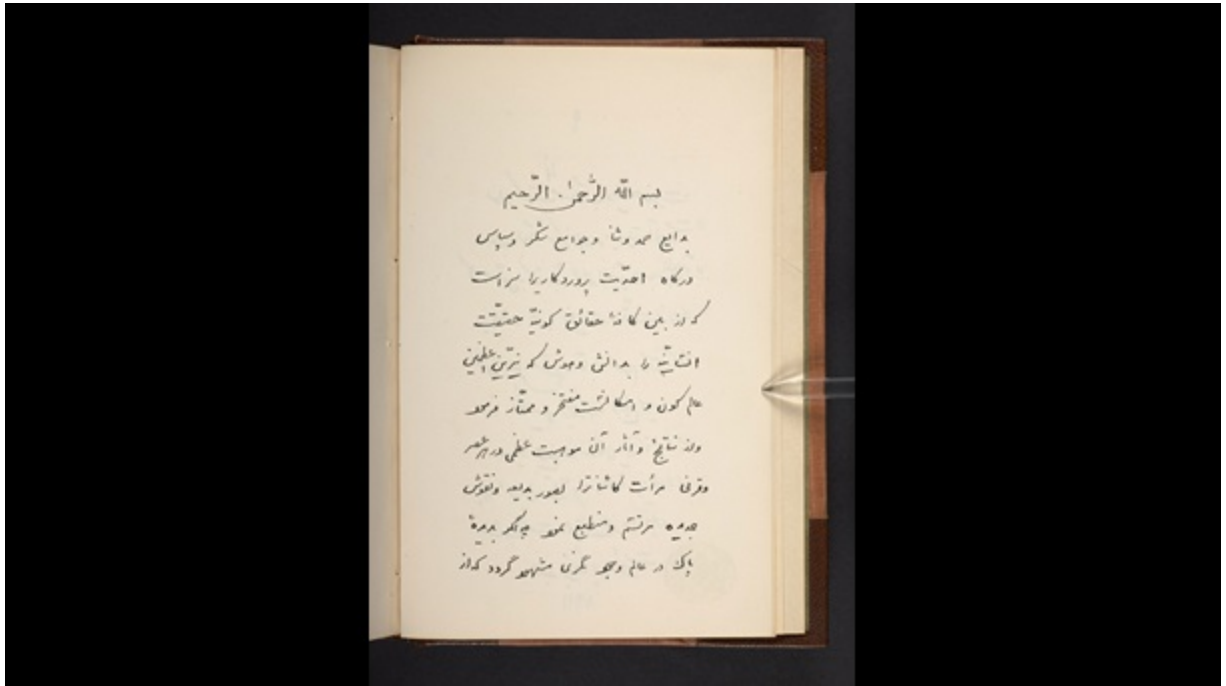 بسم اللّه الرّحمن الرّحيم
بدایع حمد و ثنا و جوامع شکر و سپاس
درگاه احدّیت پروردگاریرا سزاست
که از بین کافهٔ حقائق کونیّه حقیقت
انسانیّه را بدانش و هوش که نیّرین اعظمین
عالم کون و امکانست مفتخر و ممتاز فرمود
و از نتائج و آثار آن موهبت عظمی در هر عصر
و قرنی مرآت کائناترا بصور بدیعه و نقوش
جدیده مرتسم و منطبع نمود چه اگر بدیدهٔ
پاک در عالم وجود نگری مشهود گردد که از